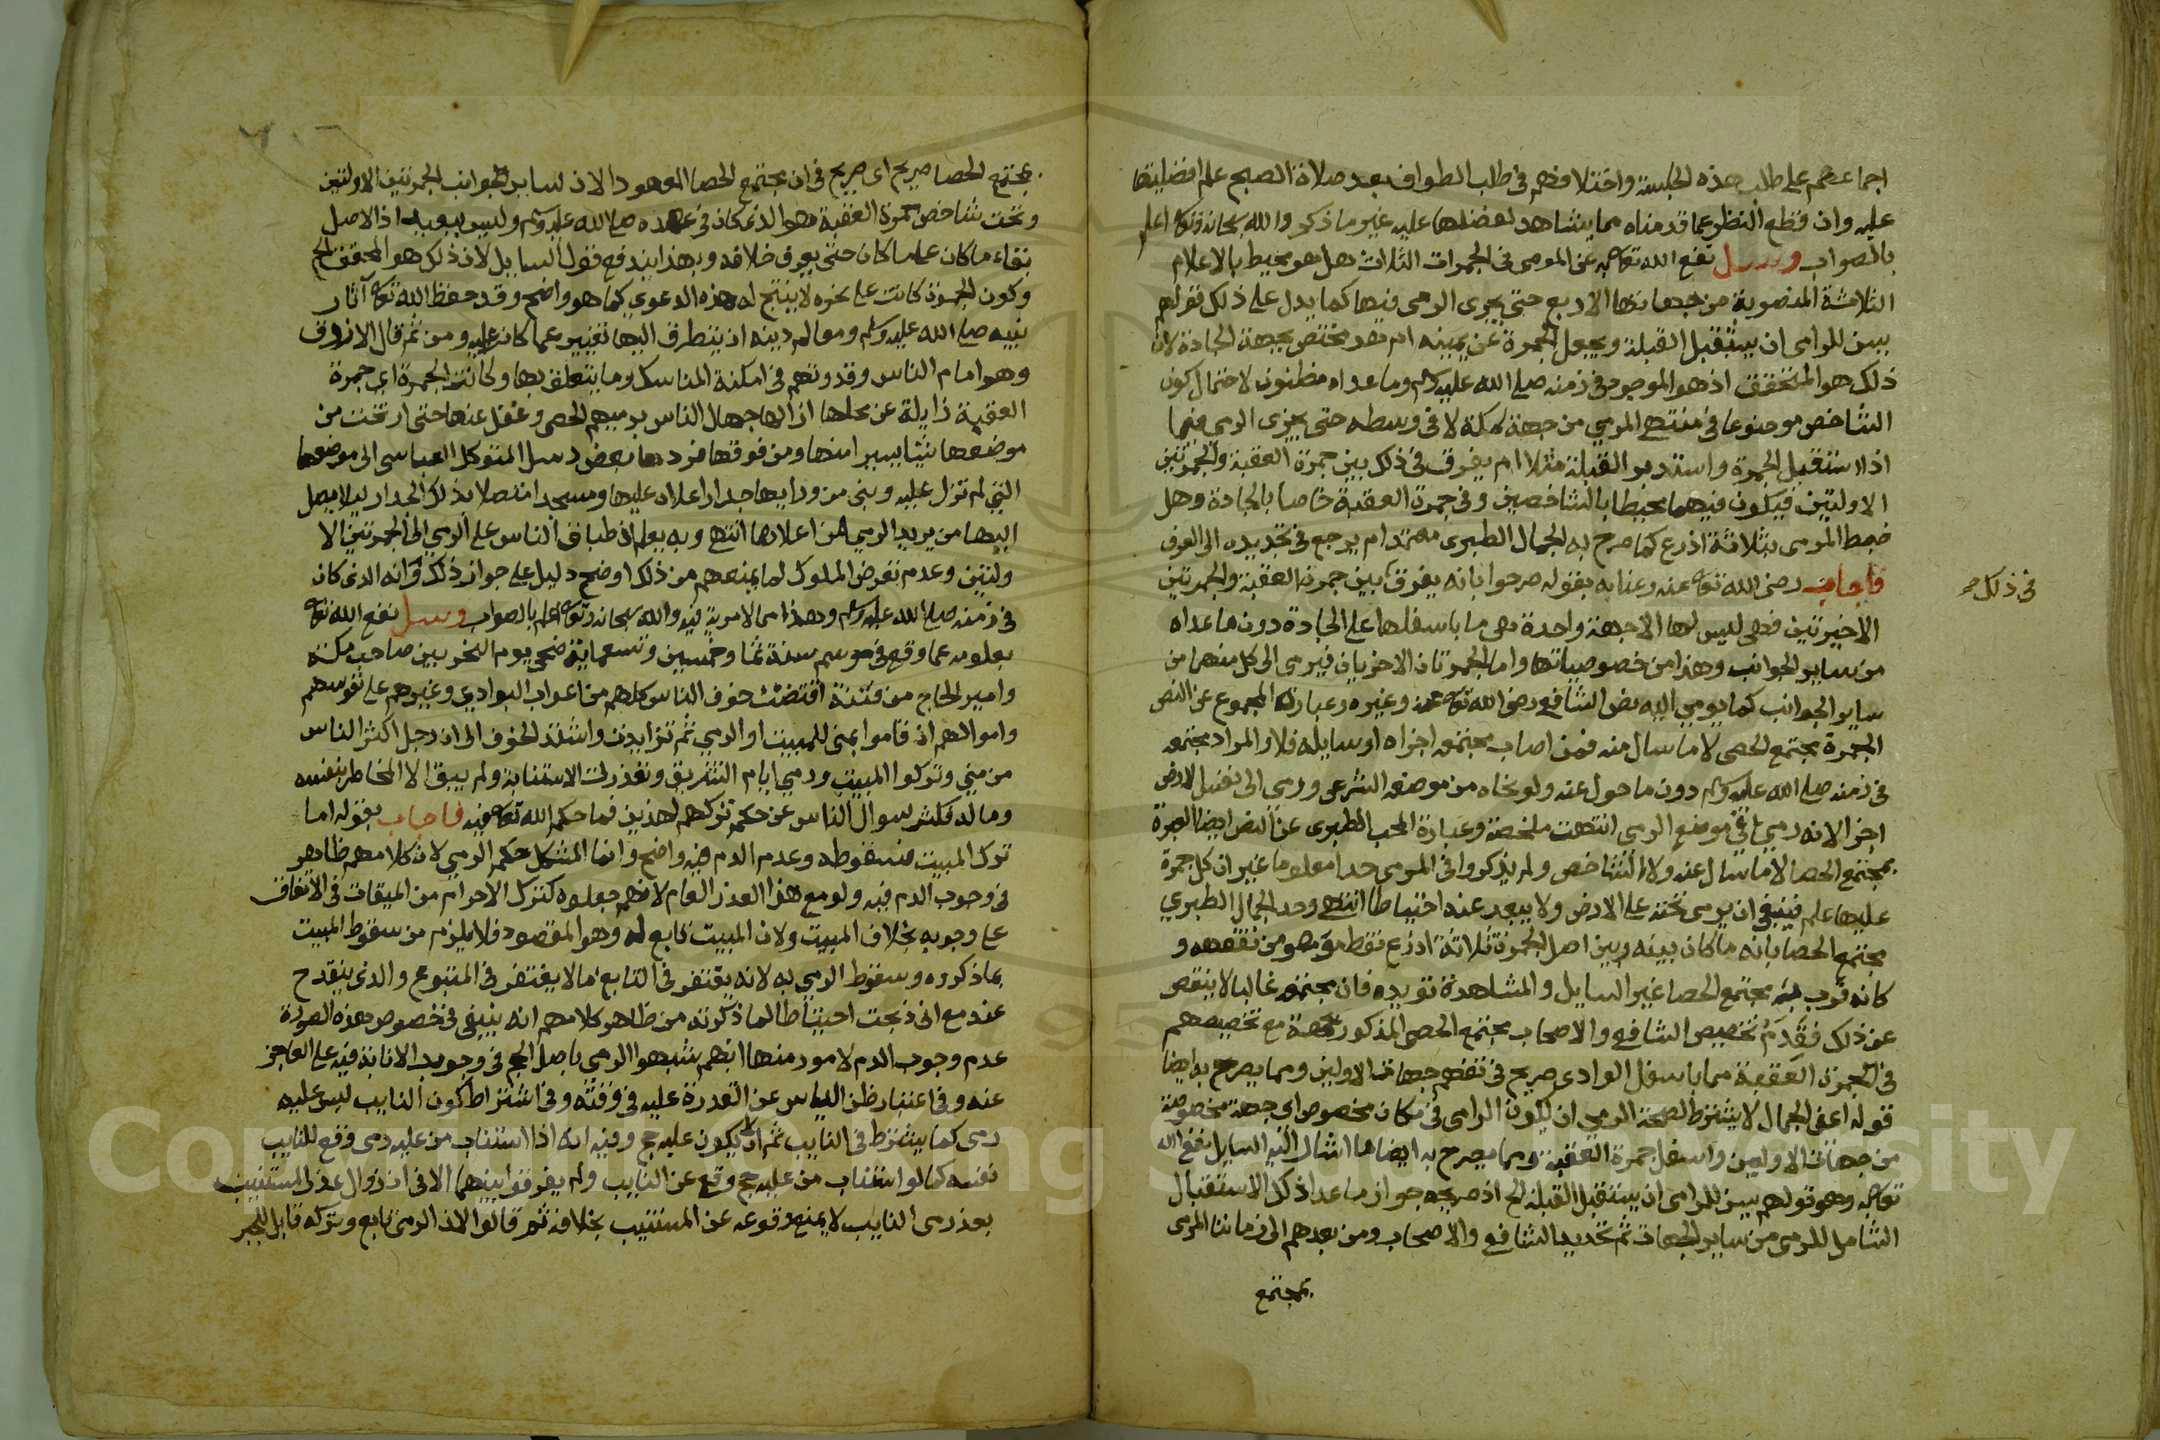 اجماعهم على طلب هذه الجلسة واختلافهم في طلب الطواف بعد صلاة الصبح علم افضليتها
عليه وان قطع النظر عما قدمناه مما يشاهد لفضلها عليه غير ما ذكر والله سبحانه وتعالى اعلم
بالصواب وسئل نفع الله تعالى به عن المرمى في الجمرات الثلاث هل هو محيط بالاعلام
الثلاثة المنصوبة من جهاتها الاربع حتى يجزى الرمى فيها كما يدل على ذلك قولهم
يسن للرامى ان يستقبل القبلة ويجعل الجمرة عن يمينه ام هو مختص بجهة الجادة لان
ذلك هو المتحقق اذ هو الموجود في زمنه صلى الله عليه وسلم وما عداه مظنون لاحتمال كون
الشاخص موضوعا في منتهى المرمى من جهة مكة لا في وسطه حتى يجزى الرمى فيما
اذا استقبل الجمرة واستدبر القبلة مثلا ام يفرق في ذلك بين جمرة العقبة والجمرتين
الاولتين فيكون فيهما محيطا بالشاخصين وفي جمرة العقبة خاصا بالجادة وهل
ضبط المرمى بثلاثة اذرع كما صرح به الجمال الطبرى معتمد ام يرجع في تحديده الى العرف
فاجاب رضى الله تعالى عنه وعنا به بقوله صرحوا بانه يفرق بين جمرة العقبة والجمرتين
في ذلك
الاخيرتين فهى ليس لها الا جهة واحدة وهى ما باسفلها على الجادة دون ما عداه
من ساير الجوانب وهذا من خصوصياتها واما الجمرتان الاخريان فيرمى الى كل منهما من
ساير الجوانب كما يومى اليه نص الشافعى رضى الله تعالى عنه وغيره وعبارة المجموع عن النص
الجمرة مجتمع الحصى لا ما سال منه فمن اصاب مجتمعه اجزاه او سايله فلا والمراد مجتمعه
في زمنه صلى الله عليه وسلم دون ما حول عنه ولو نحاه من موضعه الشرعى ورمى الى نفس الارض
اجزا لانه رمى في موضع الرمى انتهت ملخصة وعبارة المحب الطبرى عن النص ايضا الجمرة
مجتمع الحصا لا ما سال عنه ولا الشاخص ولم يذكروا في المرمى حدا معلوما غير ان كل جمرة
عليها علم فينبغى ان يرمى تحته على الارض ولا يبعد عنه احتياطا انتهى وحد الجمال الطبرى
مجتمع الحصا بانه ما كان بينه وبين اصل الجمرة ثلاثة اذرع فقط وهو من تفقهه و
كانه قرب به مجتمع الحصا غير السايل والمشاهدة تويده فان مجتمعه غالبا لا ينقص
عن ذلك فقدم تخصيص الشافعى والاصحاب مجتمع الحصى المذكور بجهة مع تخصيصهم
في الجمرة العقبة مما باسفل الوادى صريح في تفهم جهات الاولين ومما يصرح به ايضا
قوله اعنى الجمال لا يشترط لصحة الرمى ان يكون الرامى في مكان مخصوص اى جهة مخصوصة
من جهات الاولتين واسفل جمرة العقبة ومما يصرح به ايضا ما اشار اليه السايل نفع الله
تعالى به وهو قولهم يسن للرامى ان يستقبل القبلة الخ اذ صريحه جواز ما عدا ذكر الاستقبال
الشامل للرمى من ساير الجهات ثم تحديد الشافعى والاصحاب ومن بعدهم الى زماننا المرمى
مجتمع
مجتمع الحصا صريح اى صريح في ان مجتمع الحصا المعهود الان لساير جوانب الجمرتين الاولتين
وتحت شاخص جمرة العقبة هو الذى كان في عهده صلى الله عليه وسلم وليس ببعيد اذ الاصل
بقاء ما كان على ما كان حتى يعرف خلافه وبهذا يندفع قول السايل لان ذلك هو المتحقق الخ
وكون الجمرة كانت على نحوه لا ينتج له هذه الدعوى كما هو واضح وقد حفظ الله تعالى آثار
نبيه صلى الله عليه وسلم ومعالم دينه ان يتطرق اليها تغيير عما كان عليه ومن ثم قال الازرقى
وهو امام الناس وقدوتهم في امكنة المناسك وما يتعلق بها وكانت الجمرة اى جمرة
العقبة زايلة عن محلها ازالها جهال الناس برميهم الحصى وغفل عنها حتى ارتحت من
موضعها شيئا يسيرا منها ومن فوقها فردها بعض رسل المتوكل العباسى الى موضعها
التي لم تزل عليه وبنى من ورايها جدارا اعلاه عليها ومسجدا متصلا بذلك الجدار ليلا يصل
اليها من يريد الرمى من اعلاها انتهى وبه يعلم ان اطباق الناس على الرمى الى الجمرتين الا
ولتين وعدم تعرض الملوك لما يمنعهم من ذلك اوضح دليل على جواز ذلك وانه الذى كان
في زمنه صلى الله عليه وسلم وهذا مما لا مرية فيه والله سبحانه وتعالى اعلم بالصواب وسئل نفع الله تعالى
بعلومه عما وقع في موسم سنة ثمان وخمسين وتسعماية ضحى يوم النحر بين صاحب مكة
وامير الحاج من فتنة اقتضت خوف الناس كلهم من اعراب البوادى وغيرهم على نفوسهم
واموالهم ان قاموا بمنى للمبيت او الرمى ثم تزايدت واشتد الخوف الى ان رحل اكثر الناس
من منى وتركوا المبيت ورمى ايام التشريق وتعذرت الاستنابة ولم يبق الا المخاطر بنفسه
وماله فكثر سوال الناس عن حكم تركهم لهذين فما حكم الله تعالى فيه فاجاب بقوله اما
ترك المبيت فسقوطه وعدم الدم فيه واضح وانما المشكل حكم الرمى لان كلامهم ظاهر
في وجوب الدم فيه ولو مع هذا العذر العام لانهم جعلوه كترك الاحرام من الميقات في الاتفاق
على وجوبه بخلاف المبيت ولان المبيت تابع له وهو المقصود فلا يلزم من سقوط المبيت
بما ذكروه وسقوط الرمى به لانه يغتفر في التابع ما لا يغتفر في المتبوع والذى ينقدح
عندى مع انى ذبحت احتياطا لما ذكرته من ظاهر كلامهم انه ينبغى في خصوص هذه الصورة
عدم وجوب الدم لامور منها انهم شبهوا الرمى باصل الحج في وجوب الانابة فيه على العاجز
عنه وفي اعتبار ظن الياس عن القدرة عليه في وقته وفي اشتراط كون النايب ليس عليه
رمى كما يشترط في النايب ثم ان لا يكون عليه حج وفيه انه اذا استناب من عليه رمى وقع للنايب
نفسه كما لو استناب من عليه حج وقع عن النايب ولم يفرقوا بينهما الا في ان زوال عذر المستنيب
بعد رمى النايب لا يمنع وقوعه عن المستنيب بخلافه ثم قالوا لان الرمى تابع وتركه قابل للجبر